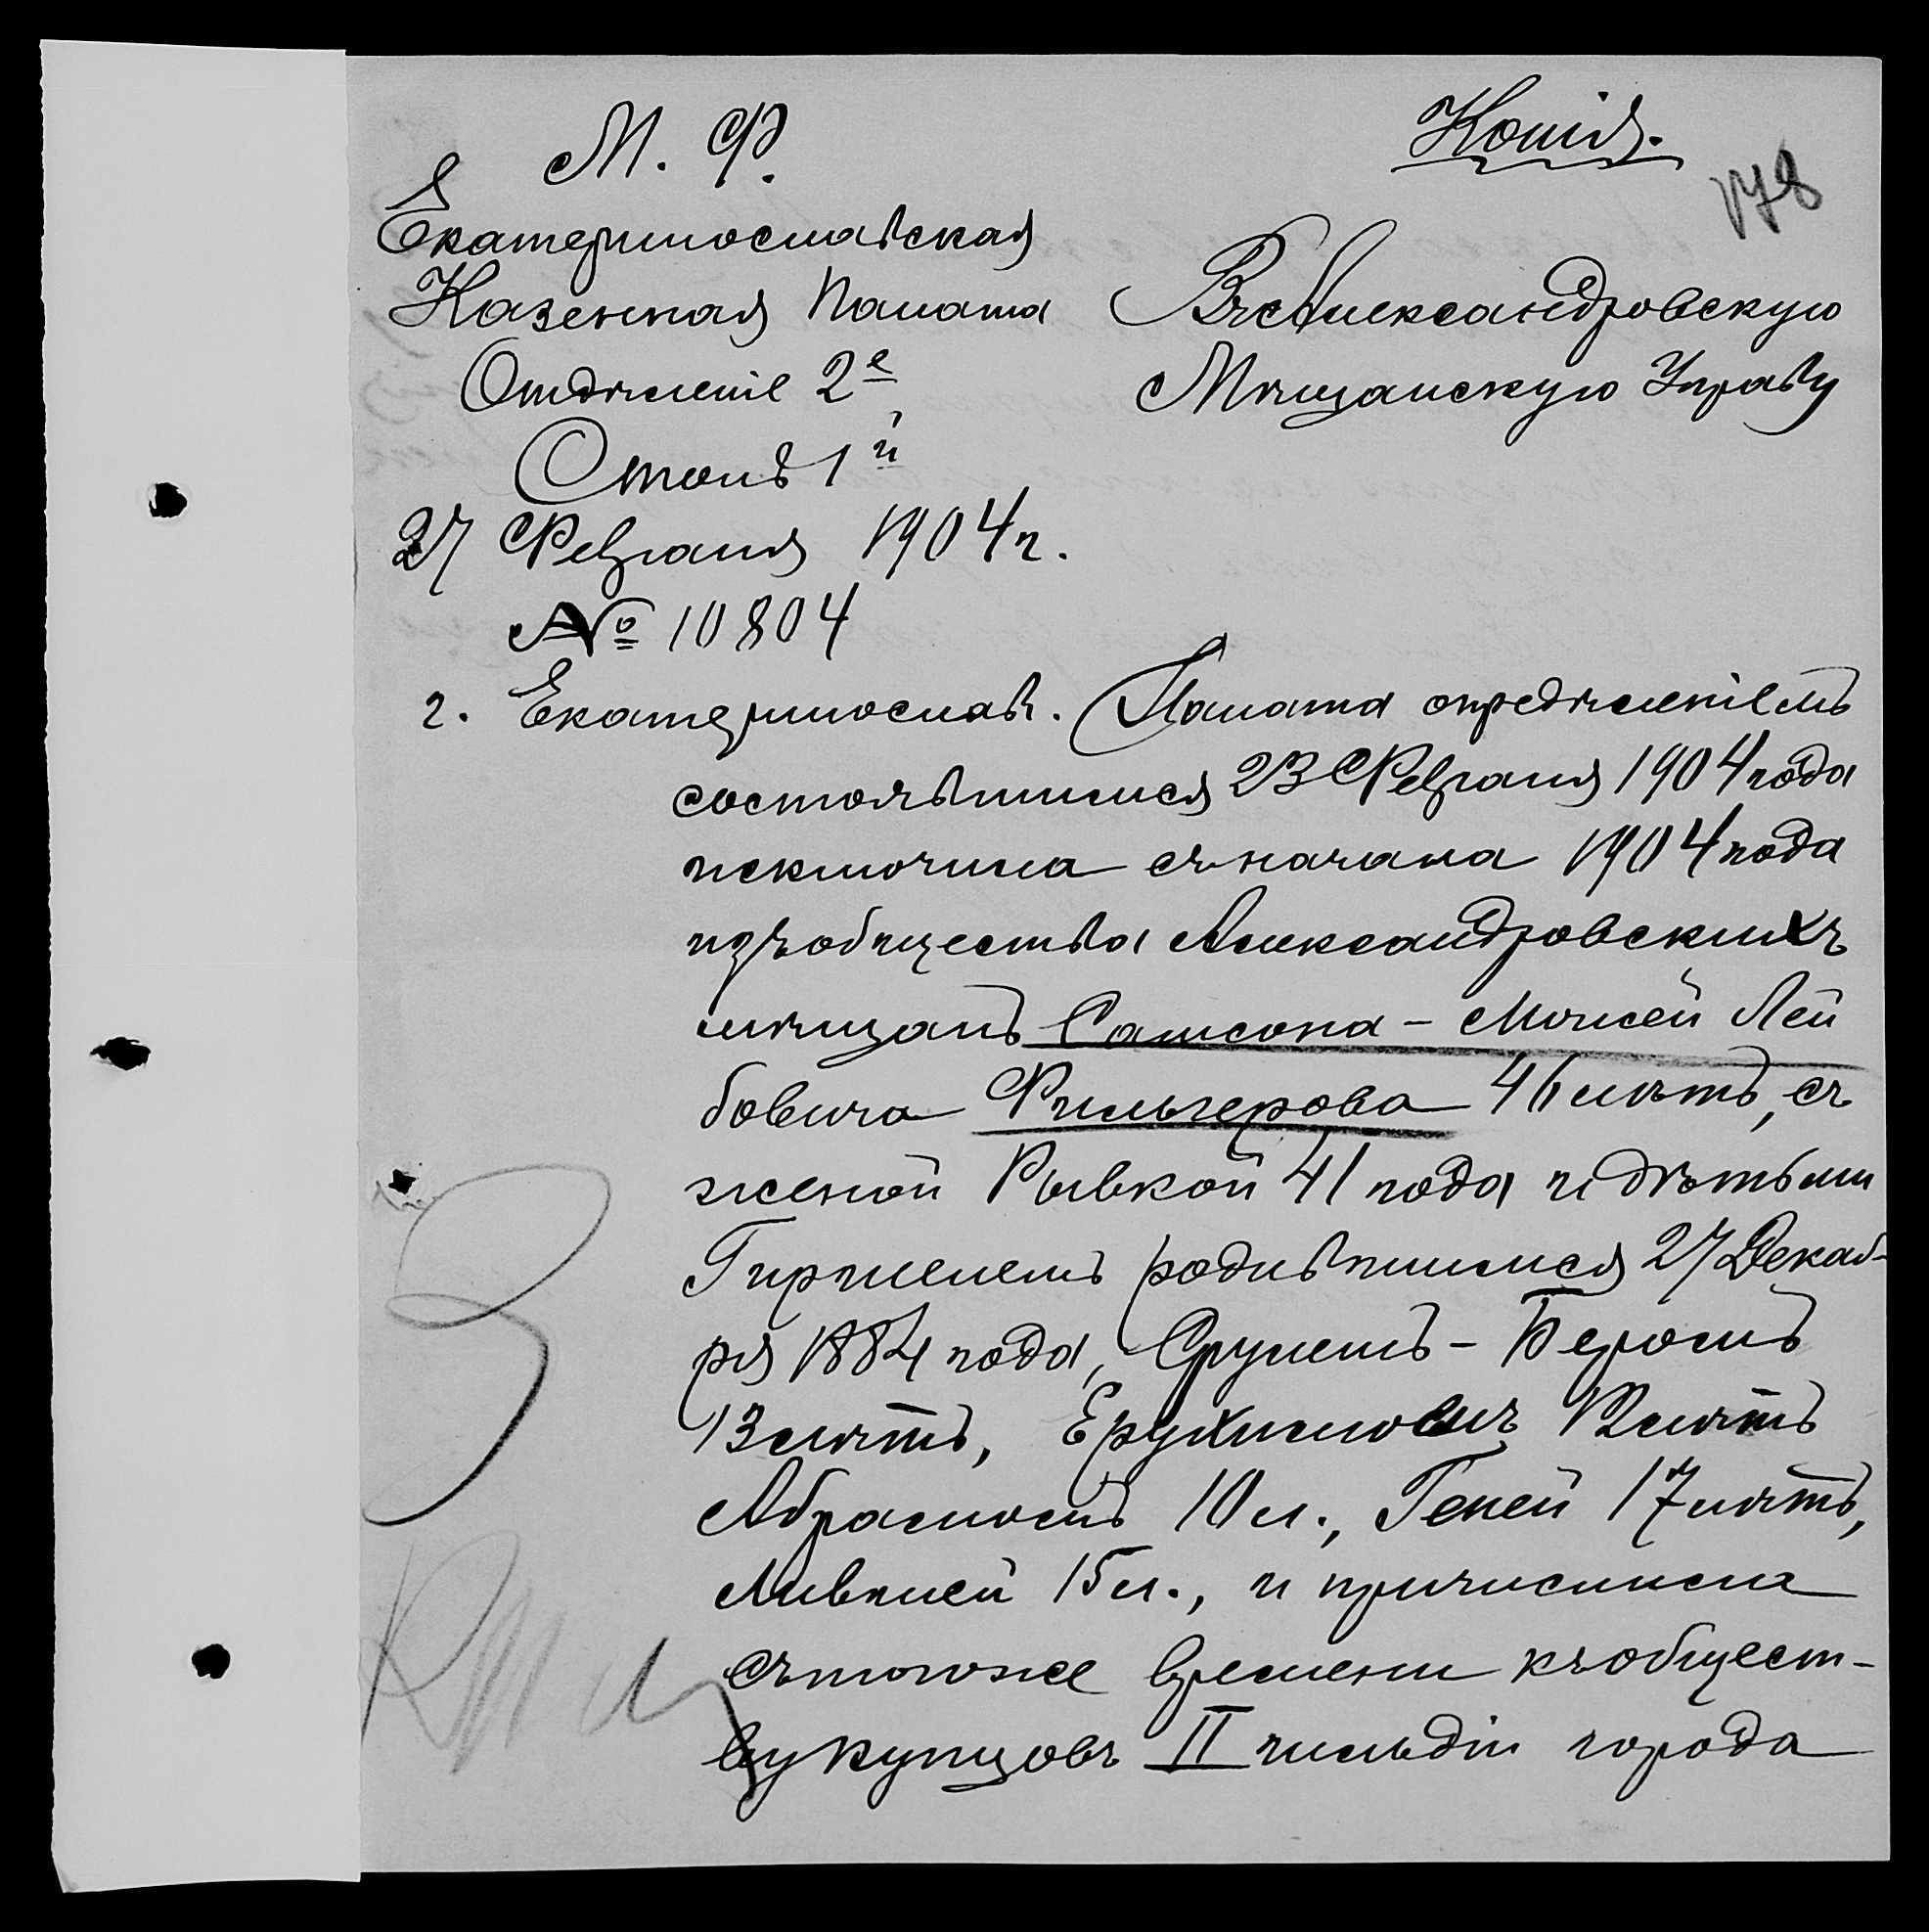 М. Ф.
Копія.
178
Екатеринославская
Казенная Палата
Отдѣленіе 2е
Столъ 1й
27 Февраля 1904 г.
№ 10804
г. Екатеринослав.
Въ Александровскую
Мѣщанскую Управу
Палата опредѣленіемъ
состоявшимся 23 Февраля 1904 года
исключила съ начала 1904 года
изъ общества Александровскихъ
мѣщанъ Самсона-Моисей Лей
бовича Фильгерова 46 лѣтъ, съ
женой Рывкой 41 года и дѣтьми
Гиршелемъ родившимся 27 Декаб-
ря 1884 года, Срулемъ-Беромъ
13 лѣтъ, Ерухимомъ 12 лѣтъ
Абрамомъ 10 л., Геней 17 лѣтъ,
Лившей 15 л., и причислила
съ того же времени къ общест-
ву купцовъ II гильдіи города